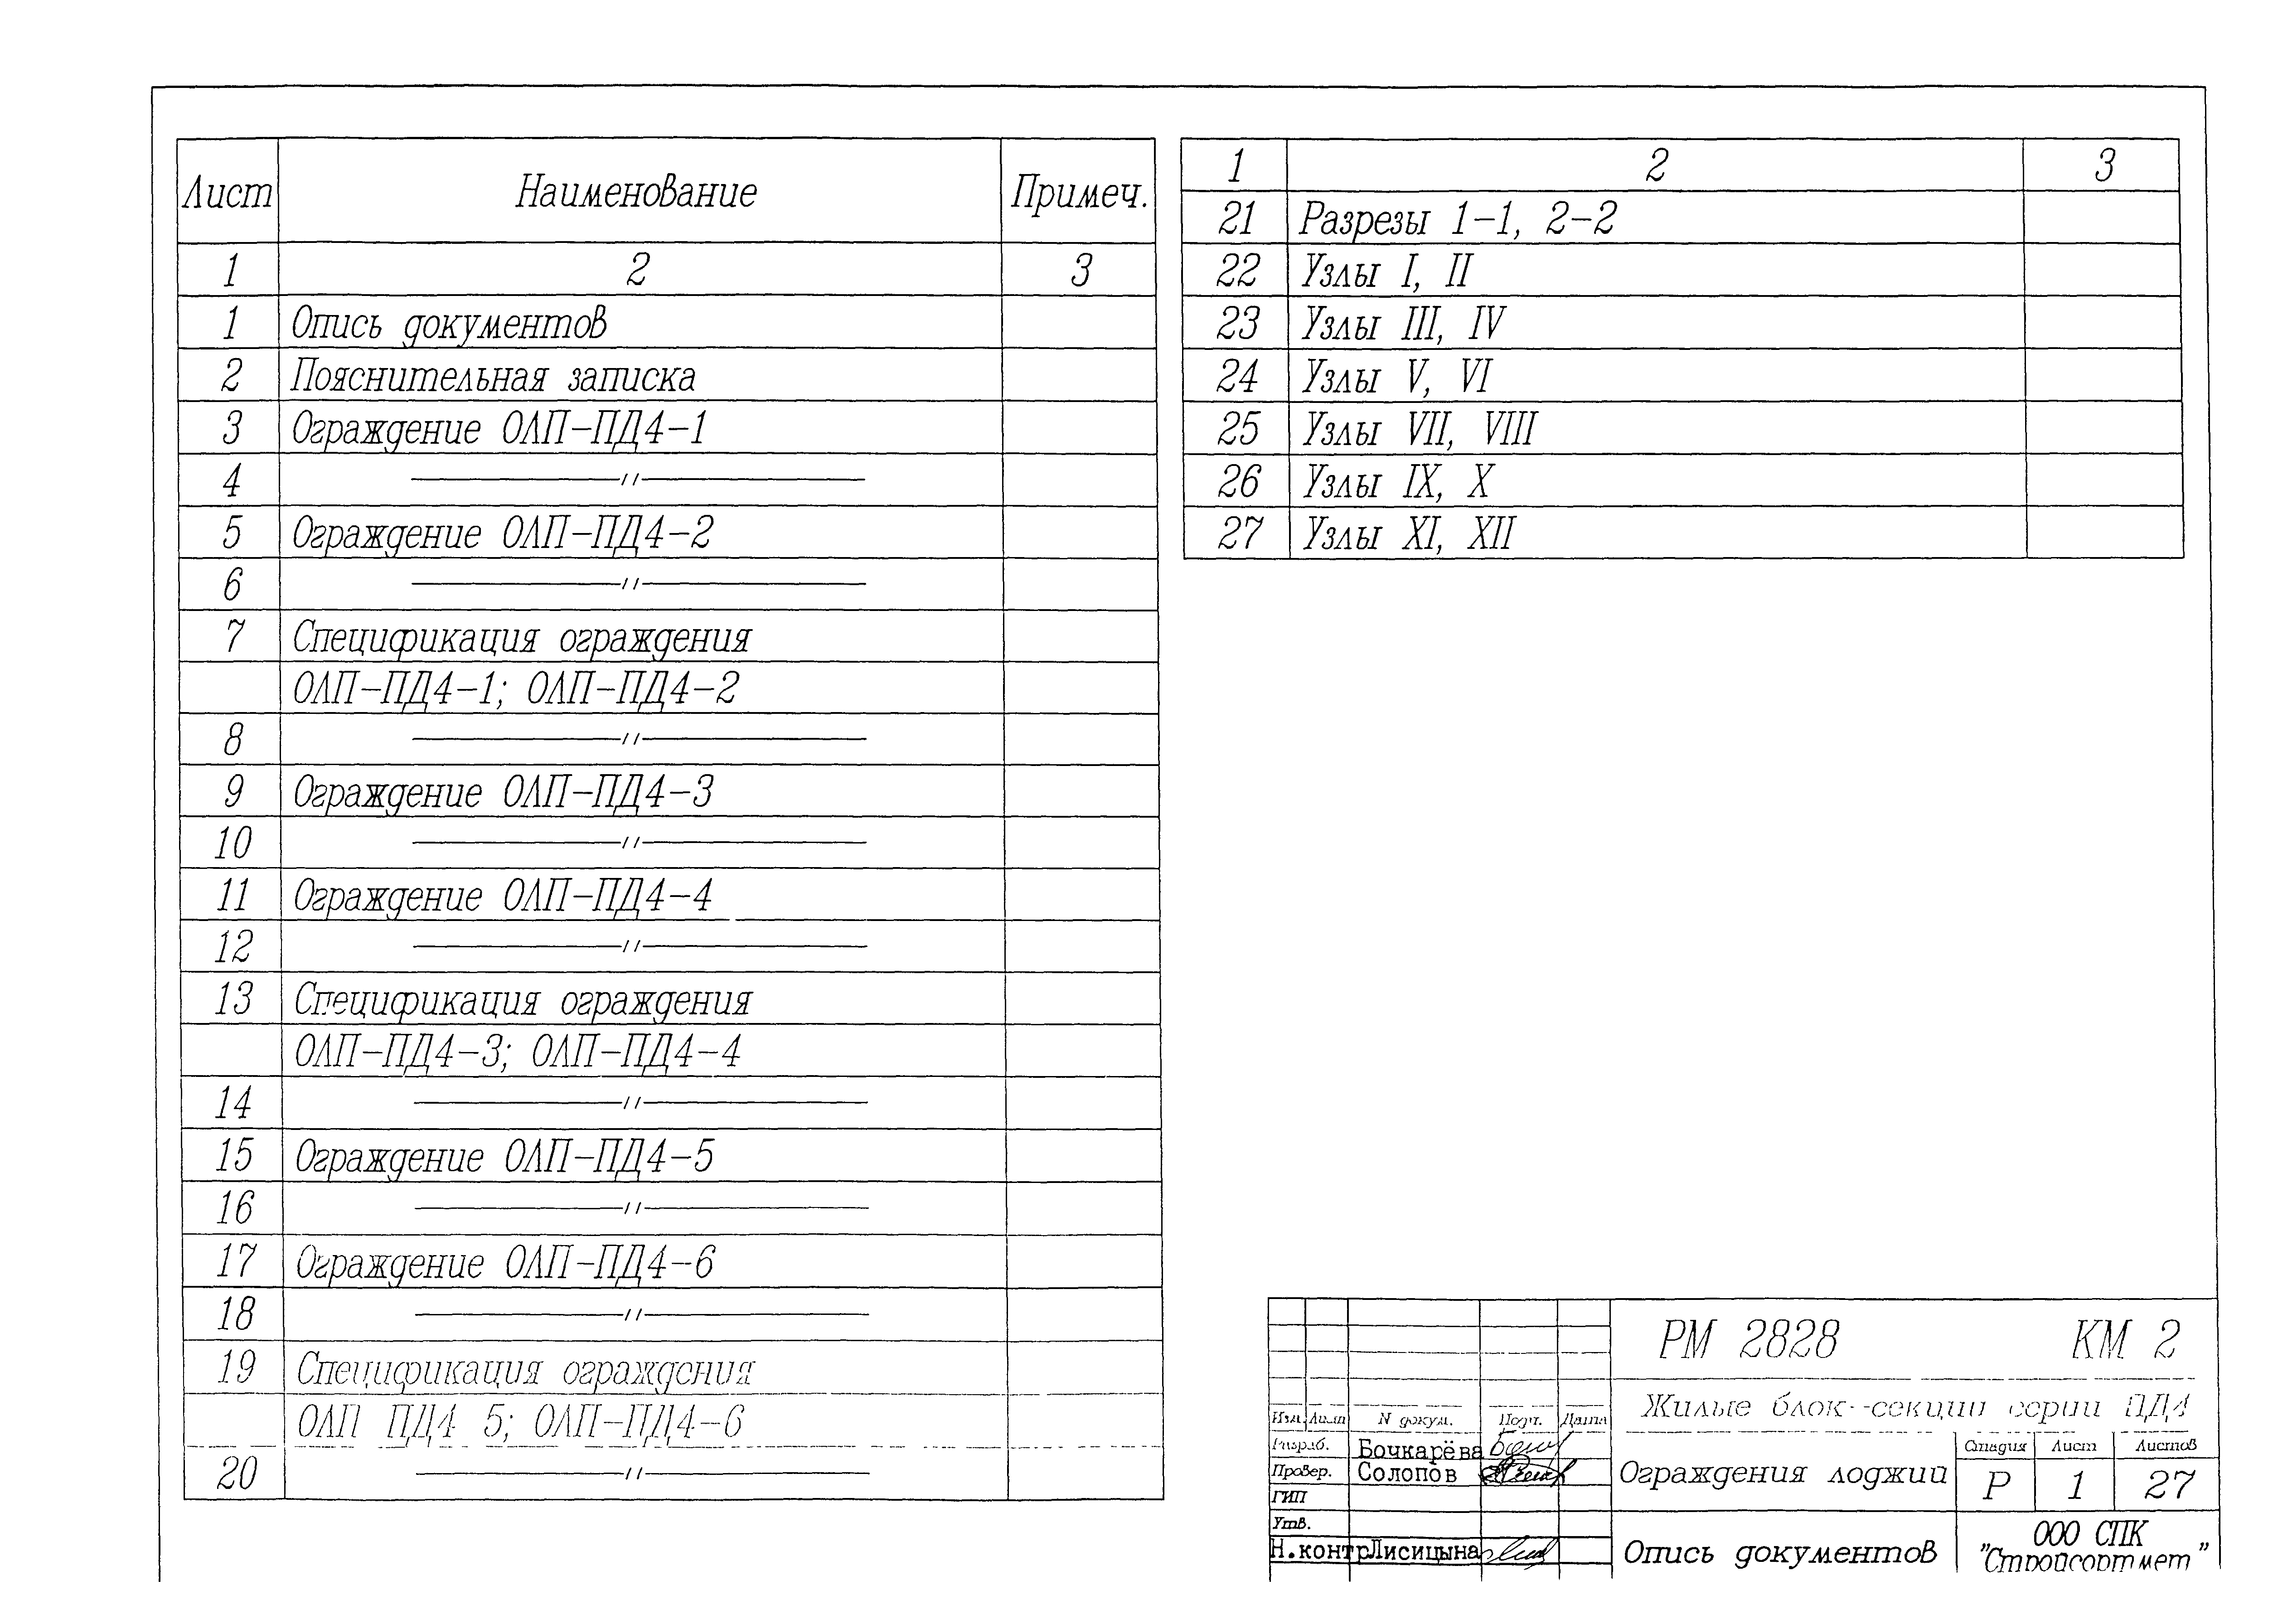 Лист Наименование Примеч.
1 2 3
1 Опись документов
2 Пояснительная записка
3 Ограждение ОЛП-ПД4-1
4 —〃—
5 Ограждение ОЛП-ПД4-2
6 —〃—
7 Спецификация ограждения
ОЛП-ПД4-1; ОЛП-ПД4-2
8 —〃—
9 Ограждение ОЛП-ПД4-3
10 —〃—
11 Ограждение ОЛП-ПД4-4
12 —〃—
13 Спецификация ограждения
ОЛП-ПД4-3; ОЛП-ПД4-4
14 —〃—
15 Ограждение ОЛП-ПД4-5
16 —〃—
17 Ограждение ОЛП-ПД4-6
18 —〃—
19 Спецификация ограждения
ОЛП ПД4 5; ОЛП-ПД4-6
20 —〃—
1 2 3
21 Разрезы 1-1, 2-2
22 Узлы I, II
23 Узлы III, IV
24 Узлы V, VI
25 Узлы VII, VIII
26 Узлы IX, X
27 Узлы XI, XII
РМ 2828 КМ 2
Жилые блок-секции серии ПД4
Изм. Лист N докум. Подп. Дата
Разраб. Бочкарёва
Провер. Солопов
ГИП
Утв.
Н.контр Лисицына
Ограждения лоджий
Стадия Лист Листов
Р 1 27
Опись документов
ООО СПК
"Стройсортмет"